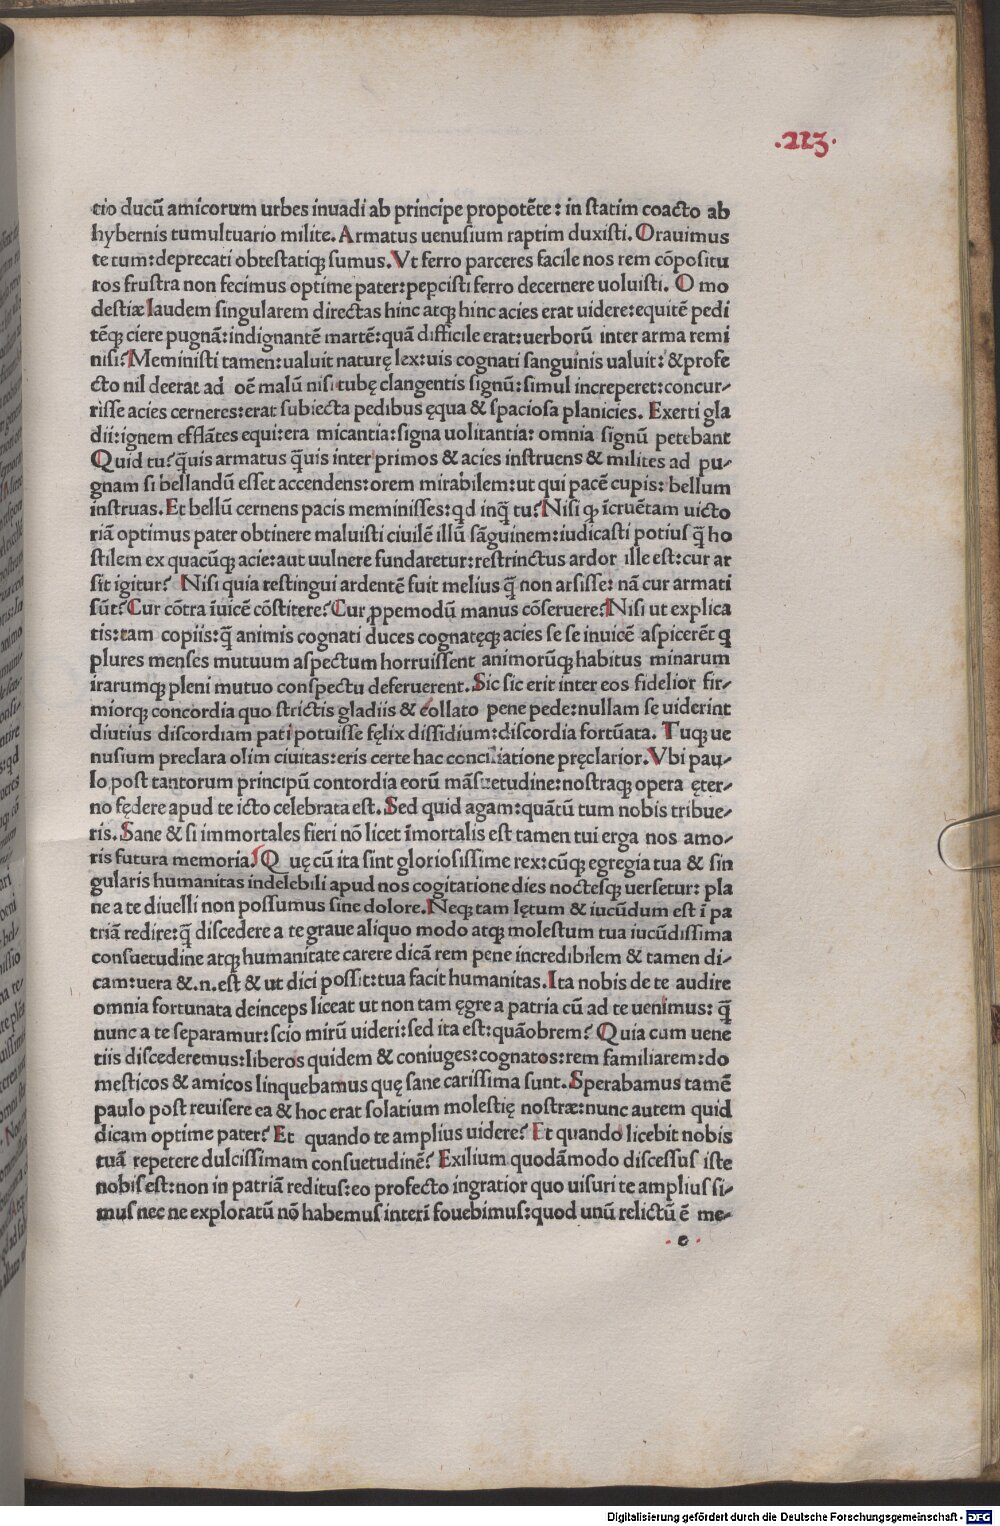 .223.
tio ducū amicorum urbes inuadi ab principe propotēte: in statim coacto ab
hybernis tumultuario milite. Armatus uenusium raptim duxisti. Orauimus
te tum: deprecati obtestatiq; sumus. Vt ferro parceres facile nos rem cōpositu
ros frustra non fecimus optime pater: pepcisti ferro decernere uoluisti. O mo
destiæ laudem singularem directas hinc atq; hinc acies erat uidere: equitē pedi
tēq; ciere pugnā: indignantē martē: quā difficile erat: uerborū inter arma remi
nisi? Meministi tamen: ualuit naturę lex: uis cognati sanguinis ualuit: & profe
cto nil deerat ad oē malū nisi tubę clangentis signū: simul increperet: concur-
risse acies cerneres: erat subiecta pedibus ęqua & spaciosa planicies. Exerti gla
dii: ignem efflātes equi: era micantia: signa uolitantia: omnia signū petebant
Quid tu? q̄uis armatus q̄uis inter primos & acies instruens & milites ad pu-
gnam si bellandū esset accendens: orem mirabilem: ut qui pacē cupis: bellum
instruas. Et bellū cernens pacis meminisses: qd inq̄ tu? Nisi q; īcruētam uicto
riā optimus pater obtinere maluisti ciuilē illū sāguinem: iudicasti potius q̄ ho
stilem ex quacūq; acie: aut uulnere fundaretur: restrinctus ardor ille est: cur ar
sit igitur? Nisi quia restingui ardentē fuit melius q̄ non arsisse: nā cur armati
sūt? Cur cōtra īuicē cōstitere? Cur ꝓpemodū manus cōseruere? Nisi ut explica
tis: tam copiis: q̄ animis cognati duces cognatęq; acies se se inuicē aspicerēt q
plures menses mutuum aspectum horruissent animorūq; habitus minarum
irarumq; pleni mutuo conspectu deferuerent. Sic sic erit inter eos fidelior fir-
miorq; concordia quo strictis gladiis & collato pene pede: nullam se uiderint
diutius discordiam pati potuisse fęlix dissidium: discordia fortūata. Tuq; ue
nusium preclara olim ciuitas: eris certe hac conciliatione pręclarior. Vbi pau-
lo post tantorum principū contordia eorū māsuetudine: nostraq; opera ęter-
no fędere apud te icto celebrata est. Sed quid agam: quātū tum nobis tribue-
ris. Sane & si immortales fieri nō licet īmortalis est tamen tui erga nos amo-
ris futura memoria. Q uę cū ita sint gloriosissime rex: cūq; egregia tua & sin
gularis humanitas indelebili apud nos cogitatione dies noctesq; uersetur: pla
ne a te diuelli non possumus sine dolore. Neq; tam lętum & iucūdum est ī pa
triā redire: q̄ discedere a te graue aliquo modo atq; molestum tua iucūdissima
consuetudine atq; humanitate carere dicā rem pene incredibilem & tamen di-
cam: uera &.n. est & ut dici possit: tua facit humanitas. Ita nobis de te audire
omnia fortunata deinceps liceat ut non tam ęgre a patria cū ad te uenimus: q̄
nunc a te separamur: scio mirū uideri: sed ita est: quāobrem? Quia cum uene
tiis discederemus: liberos quidem & coniuges: cognatos: rem familiarem: do
mesticos & amicos linquebamus quę sane carissima sunt. Sperabamus tamē
paulo post reuisere ea & hoc erat solatium molestię nostræ: nunc autem quid
dicam optime pater? Et quando te amplius uidere? Et quando licebit nobis
tuā repetere dulcissimam consuetudinē? Exilium quodāmodo discessus iste
nobis est: non in patriā reditus: eo profecto ingratior quo uisuri te amplius si-
mus nec ne exploratū nō habemus interī fouebimus: quod unū relictū ē me-
. e .
Digitalisierung gefördert durch die Deutsche Forschungsgemeinschaft - DFG